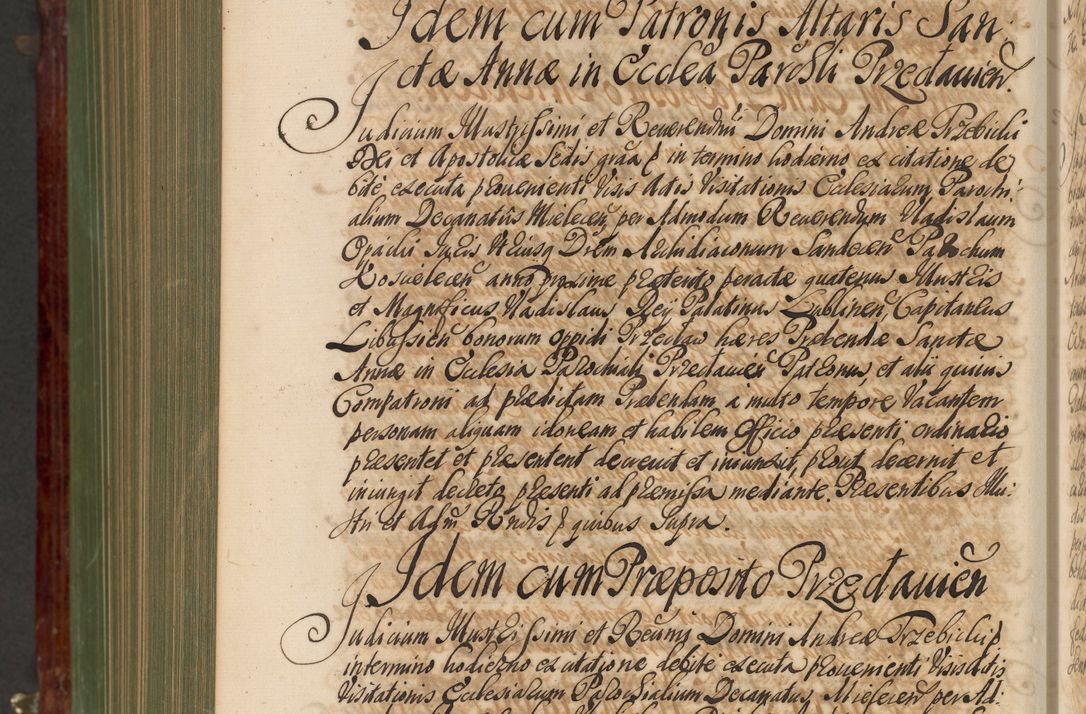 Idem cum Patronis Altaris San
ctæ Annæ in Eccleã Parochli Przecłauień.
Iudicium Illustrissimi et Reuerendm̃i Domini Andreæ Trzebicki
Dei et Apostolicæ Sedis grãa &c in termino hodierno ex citatione de
bite executa proueniente Visis Actis Visitationis Ecclesiarum Parochi-
alium Decanatûs Mieleceñ, per Admodum Reuerendum Vladislaum
Opacki Archidiaconum Sandeceñ Parochum
Koscieleceñ anno proxime præterito peractæ quatenus Illustris
et Magnificus Vladislaus Rey Palatinus Lublineñ, Capitaneus
Libussieñ bonorum oppidi Przecław hæres Præbendæ Sanctæ
Annæ in Ecclesia Parochiali Przecłauieñ Patronus, et alij quiuis
Compatroni ad prædictam Præbendam a multo tempore Vacantem
personam aliquam idoneam et habilem Officio præsenti ordinario
præsentet et præsentent decreuit et iniunxit, prout decernit et
iniungit decreto præsenti ad præmissa mediante. Præsentibus Illu-
stri et Adm̃ Rñdis &c quibus Supra.
Idem cum Præposito Przecłauień
Iudicium Illustrissimi et Reum̃i Domini Andreæ Trzebicki &c
in termino hodierno ex citatione debite executa proueniente Visis Actis
Visitationis Ecclesiarum Parochialium Decanatus Mieleceñ per Ad-